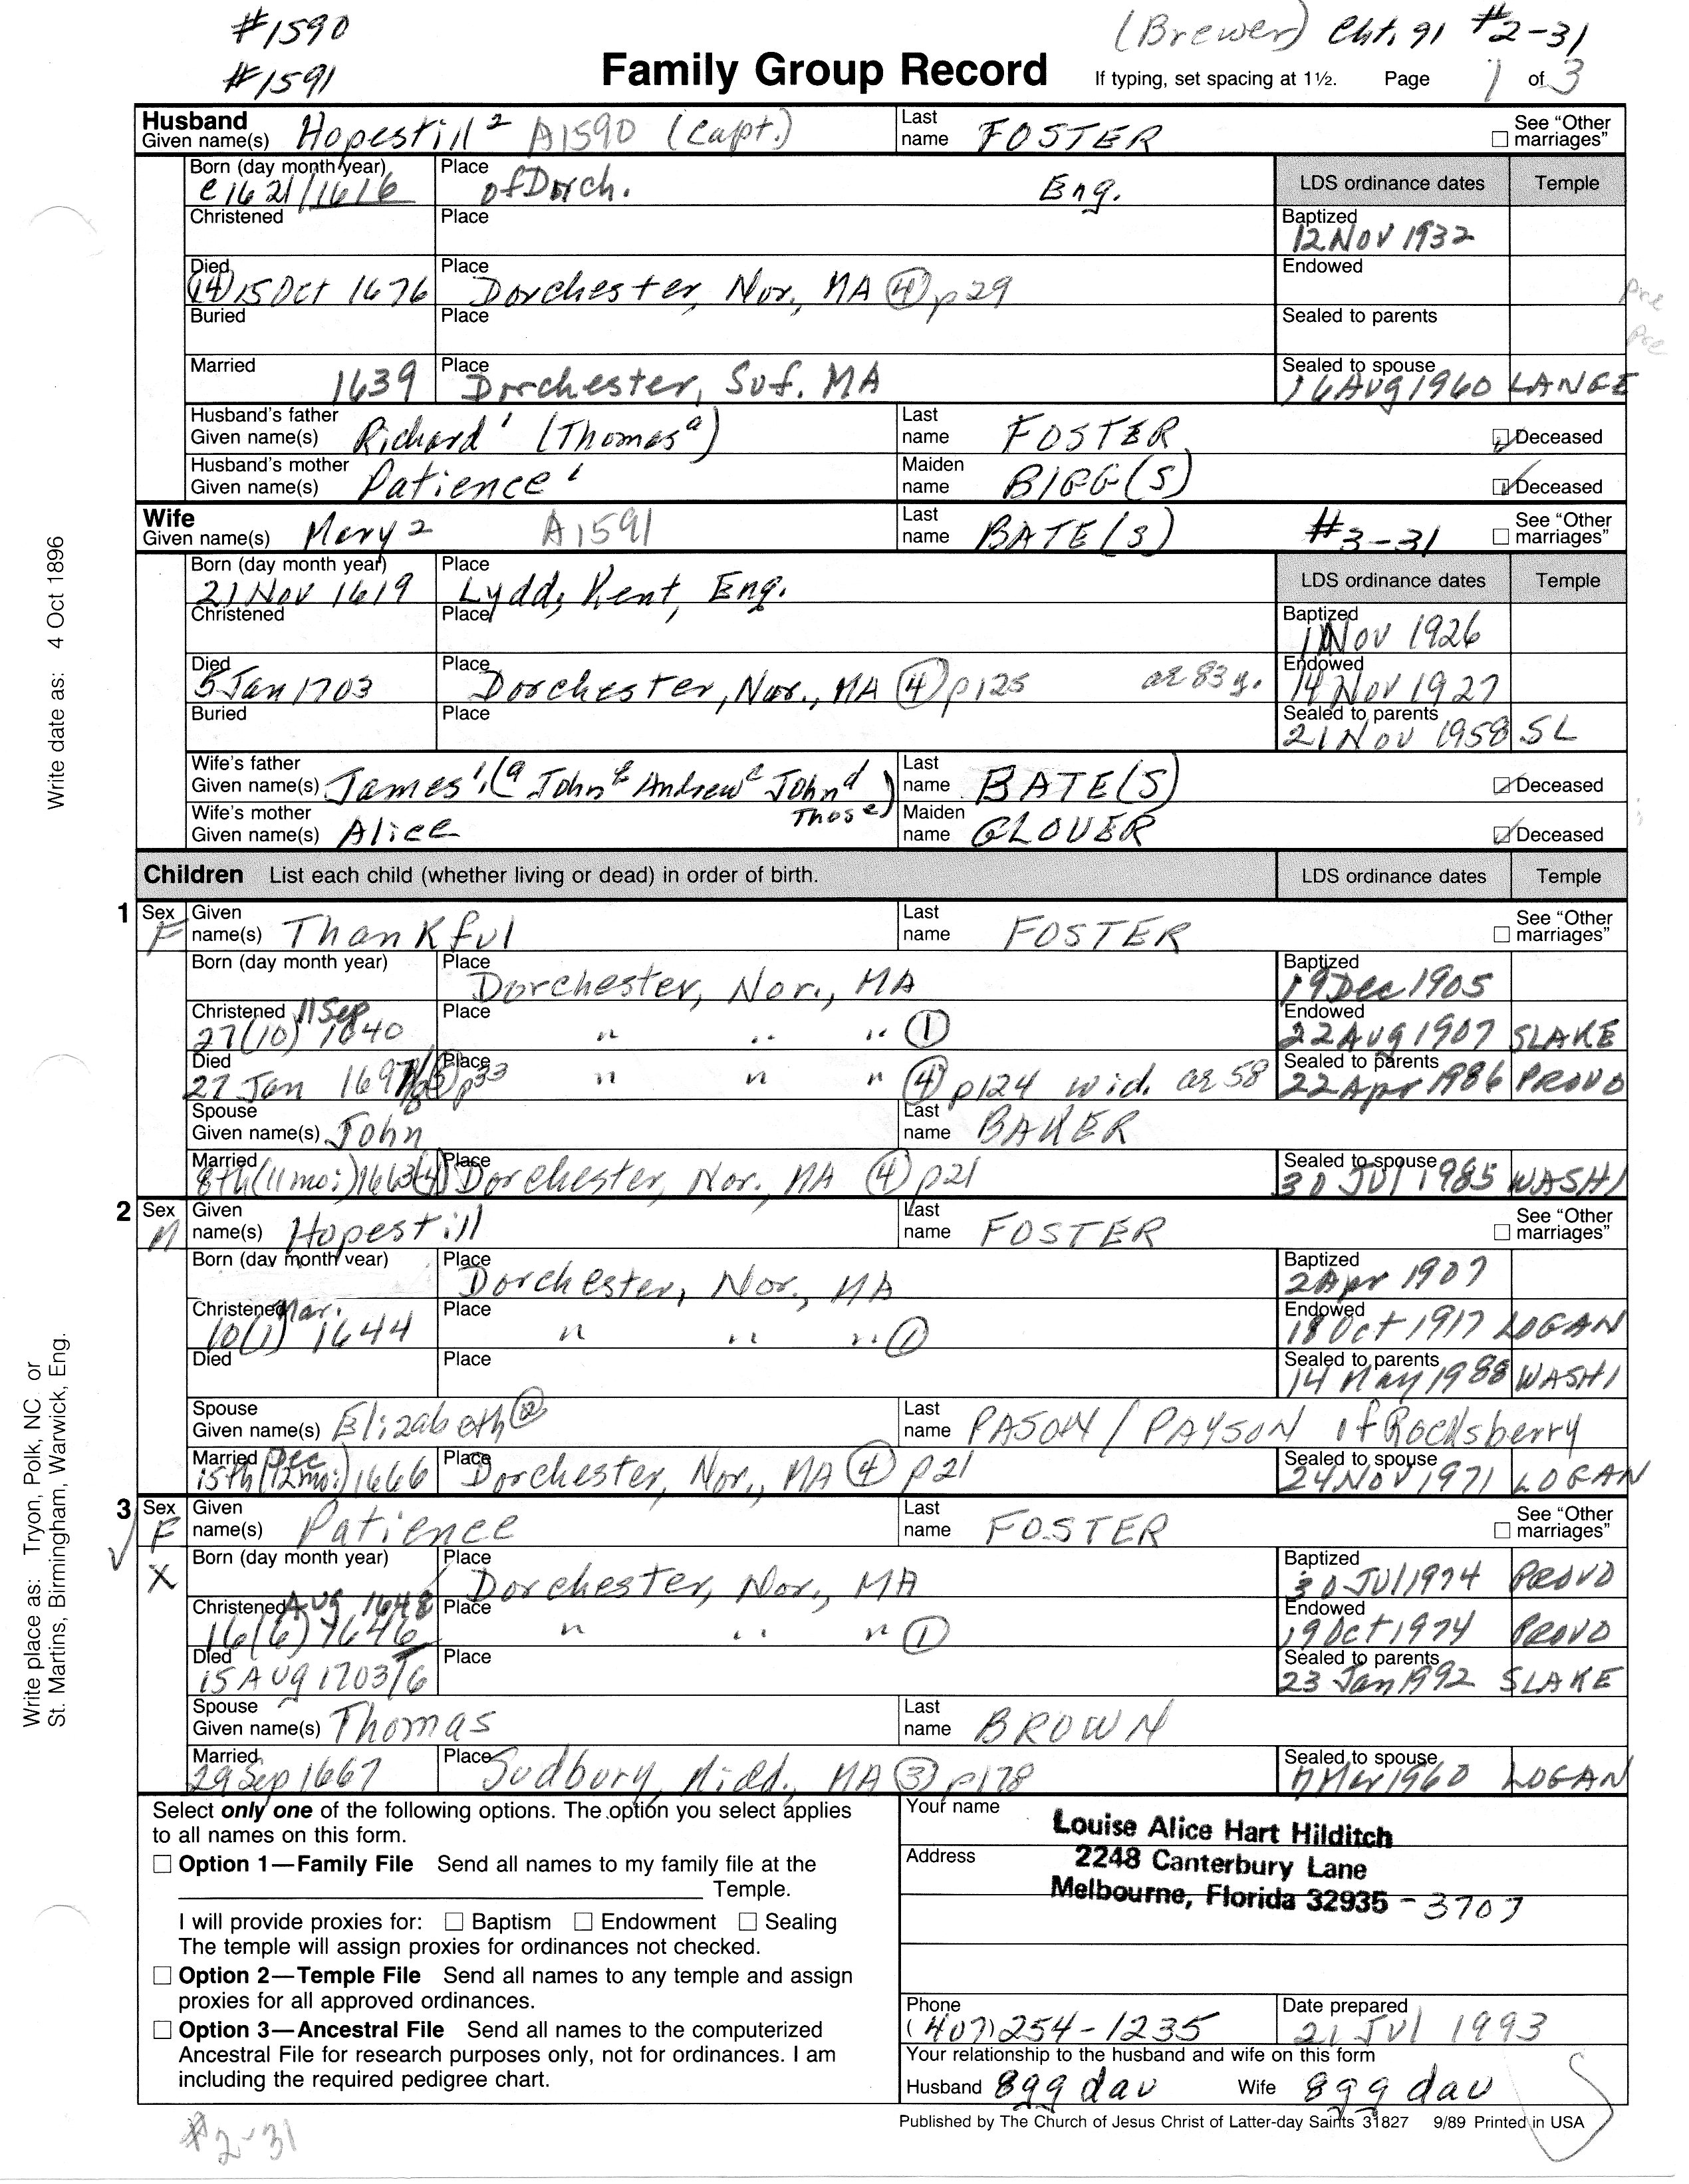 #1590
#1591
(Brewer) Cht. 91 #2-31
Family Group Record If typing, set spacing at 1½. Page 1 of 3
Husband
Given name(s) Hopestill² A1590 (Capt.) Last name FOSTER See “Other marriages”
Born (day month year) c 1621/1616 Place of Dorch. Eng. LDS ordinance dates Temple
Christened Place Baptized 12 Nov 1932
Died (14) 15 Oct 1676 Place Dorchester, Nor., MA (4) p29 Endowed
pre
Buried Place Sealed to parents
pre
Married 1639 Place Dorchester, Suf. MA Sealed to spouse 16 Aug 1960 LANGE
Husband's father Given name(s) Richard¹ (Thomasᵃ) Last name FOSTER Deceased
Husband's mother Given name(s) Patience¹ Maiden name BIGG(S) Deceased
Wife
Given name(s) Mary² A1591 Last name BATE(S) #3-31 See “Other marriages”
Born (day month year) 21 Nov 1619 Place Lydd, Kent, Eng. LDS ordinance dates Temple
Christened Place Baptized 1 Nov 1926
Died 5 Jan 1703 Place Dorchester, Nor., MA (4) p125 ae 83 y. Endowed 14 Nov 1927
Buried Place Sealed to parents 21 Nov 1958 SL
Wife's father Given name(s) James¹ (ᵃ Johnᵇ Andrewᶜ Johnᵈ Thosᵉ) Last name BATE(S) Deceased
Wife's mother Given name(s) Alice Maiden name GLOVER Deceased
Children List each child (whether living or dead) in order of birth. LDS ordinance dates Temple
1 Sex F Given name(s) Thankful Last name FOSTER See “Other marriages”
Born (day month year) Place Dorchester, Nor., MA Baptized 19 Dec 1905
Christened 11 Sep 27(10) 1640 Place " " " (1) Endowed 22 Aug 1907 SLAKE
Died 27 Jan 1697/8 p33 Place " " " (4) p124 wid. ae 58 Sealed to parents 22 Apr 1986 PROVO
Spouse Given name(s) John Last name BAKER
Married 8th (11 mo:) 1663(4) Place Dorchester, Nor. MA (4) p21 Sealed to spouse 30 Jul 1985 WASHI
2 Sex M Given name(s) Hopestill Last name FOSTER See “Other marriages”
Born (day month year) Place Dorchester, Nor., MA Baptized 2 Apr 1907
Christened Mar. 10(1) 1644 Place " " " (1) Endowed 18 Oct 1917 LOGAN
Died Place Sealed to parents 14 May 1988 WASHI
Spouse Given name(s) Elizabeth Last name PASON / PAYSON of Rocksberry
Married Dec 15th (12 mo:) 1666 Place Dorchester, Nor., MA (4) p21 Sealed to spouse 24 Nov 1971 LOGAN
3 Sex F Given name(s) Patience Last name FOSTER See “Other marriages”
X Born (day month year) Place Dorchester, Nor., MA Baptized 30 Jul 1974 PROVO
Christened Aug 1648 16(6) 1646 Place " " " (1) Endowed 19 Oct 1974 PROVO
Died 15 Aug 1703/6 Place Sealed to parents 23 Jan 1992 SLAKE
Spouse Given name(s) Thomas Last name BROWN
Married 29 Sep 1667 Place Sudbury, Midd., MA (3) p178 Sealed to spouse Mar 1960 LOGAN
Select only one of the following options. The option you select applies
to all names on this form.
Option 1—Family File Send all names to my family file at the
Temple.
I will provide proxies for: Baptism Endowment Sealing
The temple will assign proxies for ordinances not checked.
Option 2—Temple File Send all names to any temple and assign
proxies for all approved ordinances.
Option 3—Ancestral File Send all names to the computerized
Ancestral File for research purposes only, not for ordinances. I am
including the required pedigree chart.
Your name Louise Alice Hart Hilditch
Address 2248 Canterbury Lane
Melbourne, Florida 32935-3707
Phone (407) 254-1235 Date prepared 21 Jul 1993
Your relationship to the husband and wife on this form
Husband 8gg dau Wife 8gg dau
Published by The Church of Jesus Christ of Latter-day Saints 31827 9/89 Printed in USA
#2-31
Write date as: 4 Oct 1896
Write place as: Tryon, Polk, NC or
St. Martins, Birmingham, Warwick, Eng.